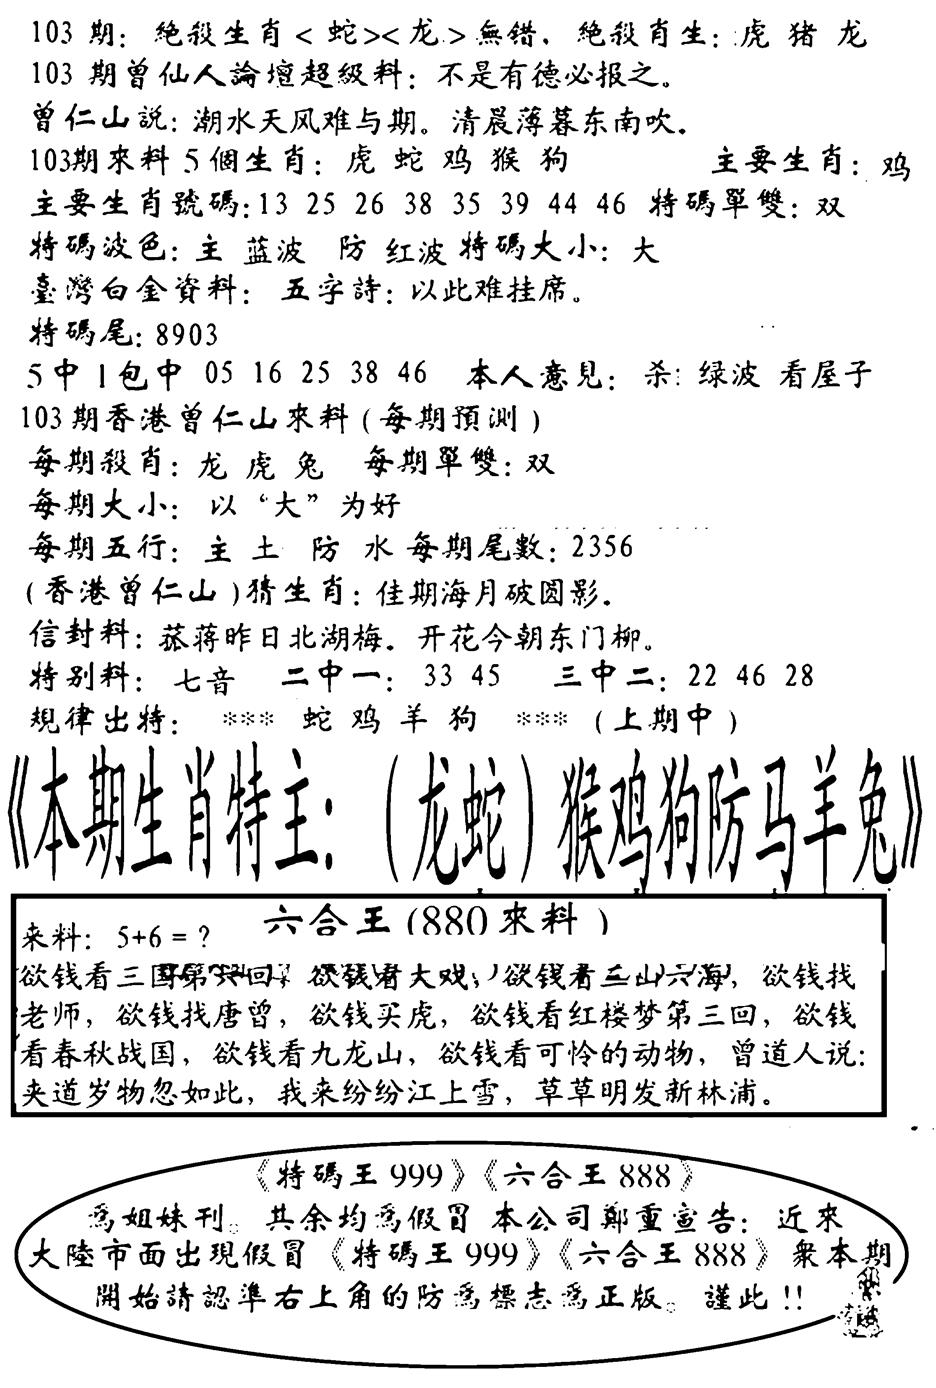 103 期: 絶殺生肖< 蛇><龙>無错. 絶殺肖生: 虎 猪 龙
103 期曾仙人論壇超級料: 不是有德必报之。
曾仁山説: 潮水天风难与期。清晨薄暮东南吹.
103期來料 5 個生肖: 虎 蛇 鸡 猴 狗 主要生肖: 鸡
主要生肖號碼:13 25 26 38 35 39 44 46 特碼單雙: 双
特碼波色: 主 蓝波 防 红波 特碼大小: 大
臺灣白金資料: 五字詩: 以此难挂席。
特碼尾: 8903
5 中 1 包中 05 16 25 38 46 本人意見: 杀: 绿波 看屋子
103 期香港曾仁山來料 (每期預測)
每期殺肖: 龙 虎 兔 每期單雙: 双
每期大小: 以“大”为好
每期五行: 主 土 防 水 每期尾數: 2356
(香港曾仁山)猜生肖: 佳期海月破圆影.
信封料: 菰蒋昨日北湖梅. 开花今朝东门柳。
特别料: 七音 二中一: 33 45 三中二: 22 46 28
規律出特: *** 蛇 鸡 羊 狗 *** (上期中)
《本期生肖特主: (龙蛇) 猴鸡狗防马羊兔》
六合王 (880 來料)
来料: 5+6 = ?
欲钱看三国第六回, 欲钱看大戏, 欲钱看三山六海, 欲钱找
老师, 欲钱找唐曾, 欲钱买虎, 欲钱看红楼梦第三回, 欲钱
看春秋战国, 欲钱看九龙山, 欲钱看可怜的动物, 曾道人说:
夹道岁物忽如此, 我来纷纷江上雪, 草草明发新林浦。
《特碼王 999》《六合王 888》
為姐妹刊。其余均為假冒 本公司鄭重宣告: 近來
大陸市面出現假冒《特碼王 999》《六合王 888》衆本期
開始請認準右上角的防為標志為正版。謹此 !!